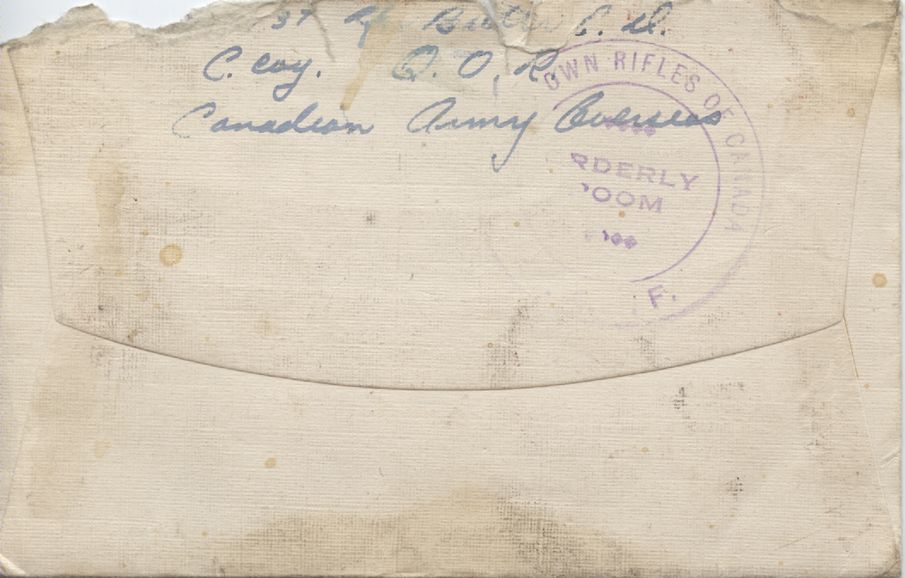 C. D.
C. Coy. Q. O. R.
Canadian Army Overseas
OWN RIFLES OF CANADA
RDERLY
OOM
F.